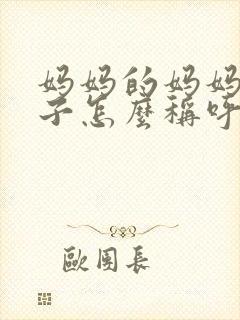 妈妈的妈妈
子怎麼稱呼
歐團長